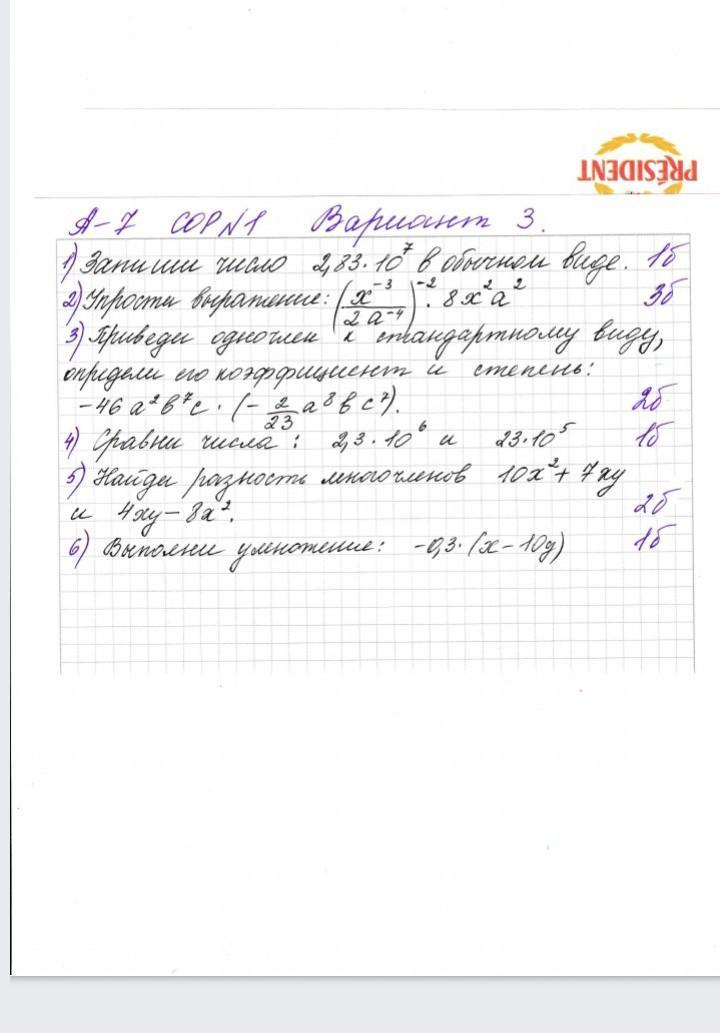 PRÉSIDENT
А-7 СОР №1 Вариант 3.
1) Запиши число 2,83·10⁷ в обычном виде. 1б
2) Упрости выражение: (x⁻³/2a⁻⁴)⁻²·8x²a² 3б
3) Приведи одночлен к стандартному виду,
определи его коэффициент и степень:
-46a²b⁷c·(-2/23 a⁸bc⁷). 2б
4) Сравни числа: 2,3·10⁶ и 23·10⁵ 1б
5) Найди разность многочленов 10x²+7xy
и 4xy-8x². 2б
6) Выполни умножение: -0,3·(x-10y) 1б